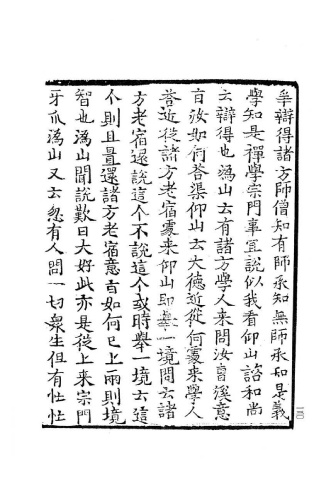 年辯得諸方師僧知有師承知無師承知是義
學知是禪學宗門事宜說似我看仰山諮和尚
云辯得也溈山云有諸方學人來問汝曺溪意
旨汝如何荅渠仰山云大德近從何處來學人
荅近從諸方老宿處來仰山即舉一境問云諸
方老宿還說這个不說這个或時舉一境云這
个則且置還諸方老宿意旨如何已上兩則境
智也溈山聞說歎曰大好此亦是從上來宗門
牙爪溈山又云忽有人問一切衆生但有忙忙